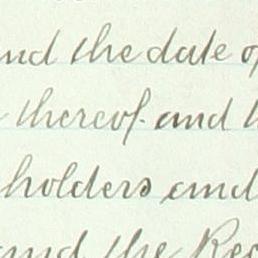 and the date of
thereof. and
holders and
and the Rec